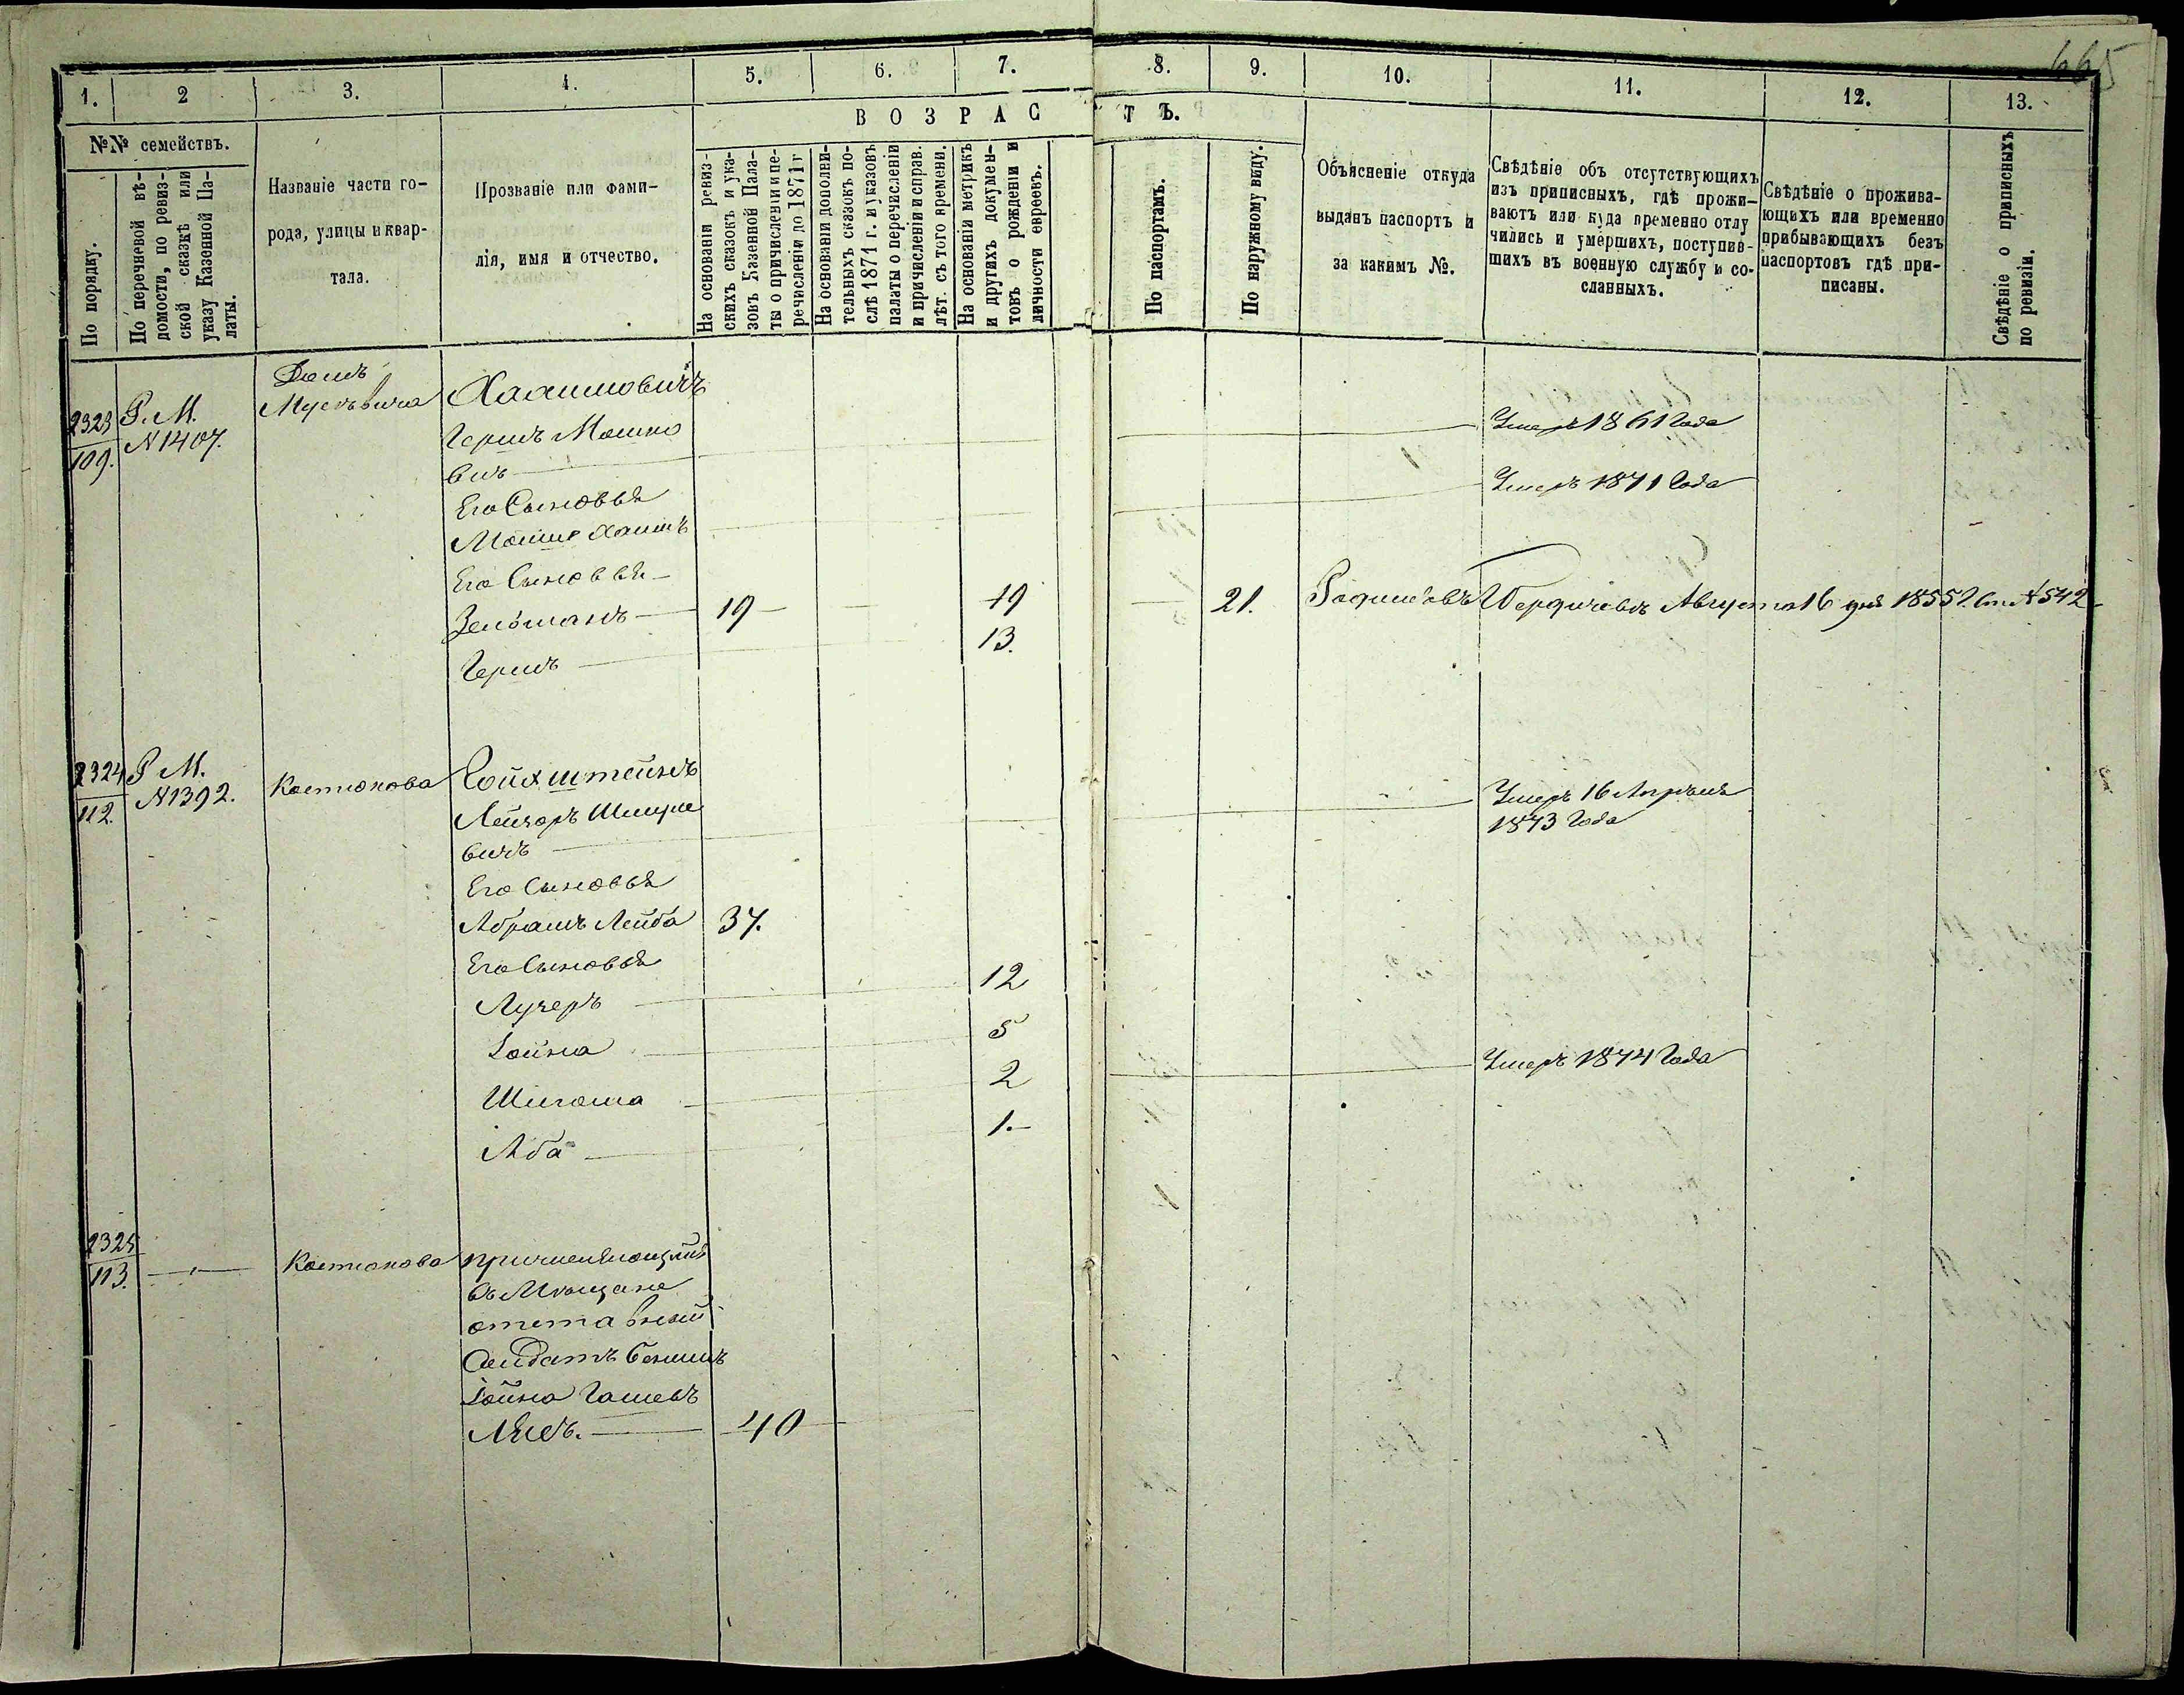 665
1.
2
3.
4.
5.
6.
7.
8.
9.
10.
11.
12.
13.
№№ семействъ.
По порядку.
По перечневой вѣ-
домости, по ревиз-
ской сказкѣ или
указу Казенной Па-
латы.
Названіе части го-
рода, улицы и квар-
тала.
Прозваніе или фами-
лія, имя и отчество.
ВОЗРАСТЪ.
На основаніи ревиз-
скихъ сказокъ и ука-
зовъ Казенной Пала-
ты о причисленіи и пе-
речисленіи до 1871 г
На основаніи дополни-
тельныхъ сказокъ по-
слѣ 1871 г. и указовъ
палаты о перечисленіи
и причисленіи и справ.
лѣт. съ того времени.
На основаніи метрикъ
и другихъ докумен-
товъ о рожденіи и
личности евреевъ.
По паспортамъ.
По наружному виду.
Объясненіе откуда
выданъ паспортъ и
за какимъ №.
Свѣдѣніе объ отсутствующихъ
изъ приписныхъ, гдѣ прожи-
ваютъ или куда временно отлу
чились и умершихъ, поступив-
шихъ въ военную службу и со-
сланныхъ.
Свѣдѣніе о прожива-
ющихъ или временно
прибывающихъ безъ
паспортовъ гдѣ при-
писаны.
Свѣдѣніе о приписныхъ
по ревизіи.
2323
109.
Р. М.
№ 1407.
Домъ
Хаимовичъ
Гершъ Мошко
вичъ
Умеръ 1861 Года
Его Сыновья
Мошко Хаимъ
Умеръ 1871 Года
Его Сыновья
Зельманъ 19 19 21.
Бердичевъ Августа 16 дня 1855 г. № 542
Гершъ 13.
2324
112.
Р М.
№ 1392.
Костюкова
Гойхштейнъ
Лейзоръ
вичъ
Умеръ 16 Апрѣля
1873 Года
Его Сыновья
Абрамъ Лейба 37.
Его Сыновья
Лузеръ 12
Іойна 5
2 Умеръ 1874 Года
Аба 1.
2325
113.
Костюкова
въ Мѣщане
отставный
Солдатъ
Іойна
40